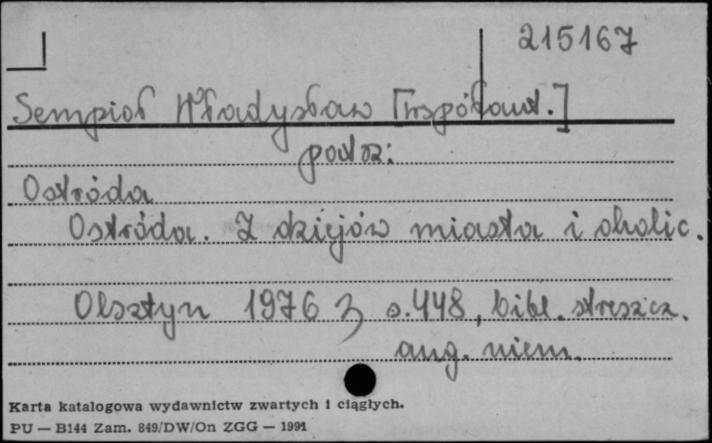 215167
Sempioł Władysław [współaut.]
patrz:
Ostróda
Ostróda. Z dziejów miasta i okolic.
Olsztyn 1976 s. 448, bibl. streszcz.
ang. niem.
Karta katalogowa wydawnictw zwartych i ciągłych.
PU — B144 Zam. 849/DW/On ZGG — 1991